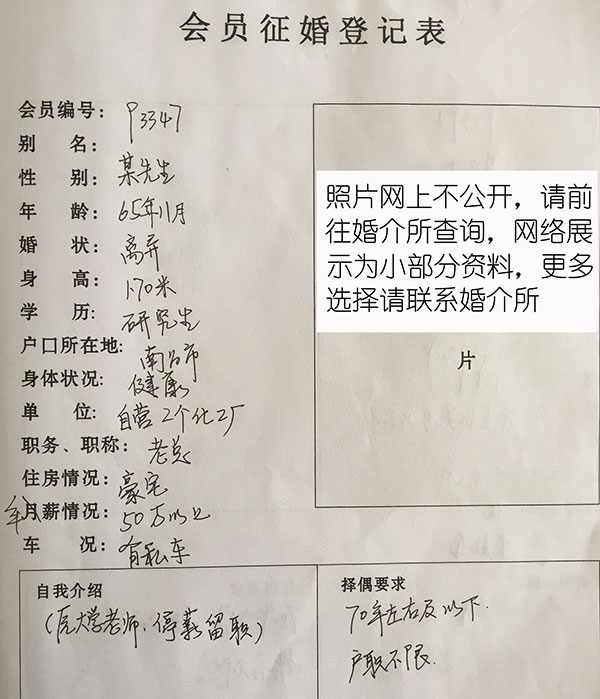 会员征婚登记表
会员编号: P3347
别 名:
性 别: 某先生
年 龄: 65年11月
婚 状: 离异
身 高: 1.70米
学 历: 研究生
户口所在地: 南昌市
身体状况: 健康
单 位: 自营2个化工厂
职务、职称: 老总
住房情况: 豪宅
年月薪情况: 50万以上
车 况: 有私车
照片网上不公开，请前
往婚介所查询，网络展
示为小部分资料，更多
选择请联系婚介所
片
自我介绍
大学老师、停薪留职)
择偶要求
70年左右及以下.
户职不限.